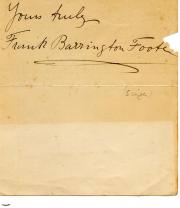 Yours truly
Frank Barrington Foote